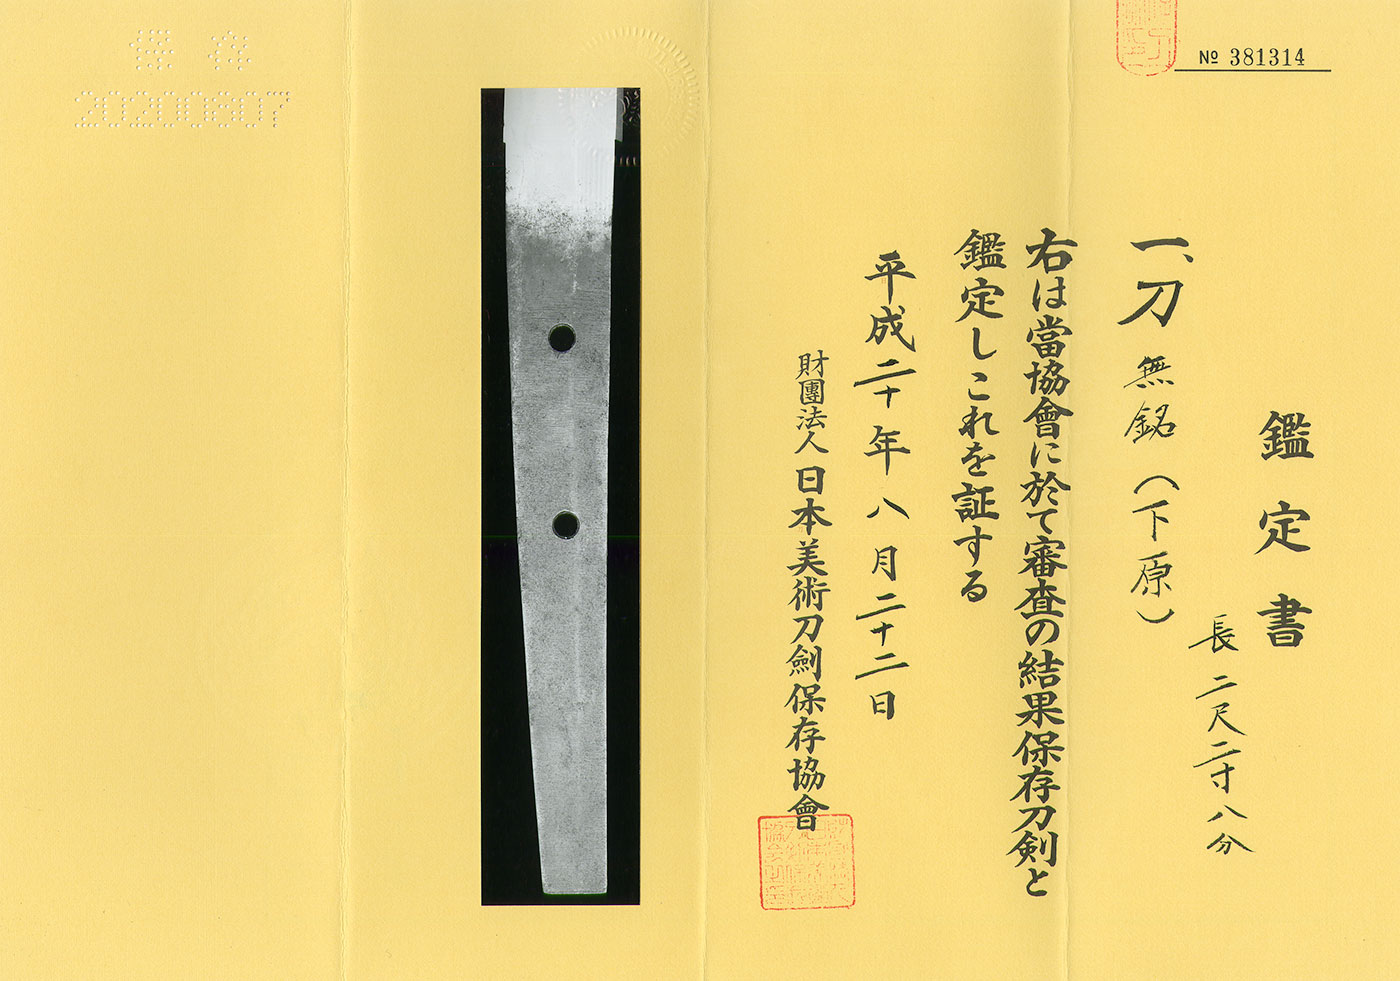 № 381314
鑑定書
一、刀 無銘（下原）
長 二尺二寸八分
右は當協會に於て審査の結果保存刀剣と
鑑定しこれを証する
平成二十年八月二十二日
財團法人 日本美術刀劍保存協會
保存
20200807